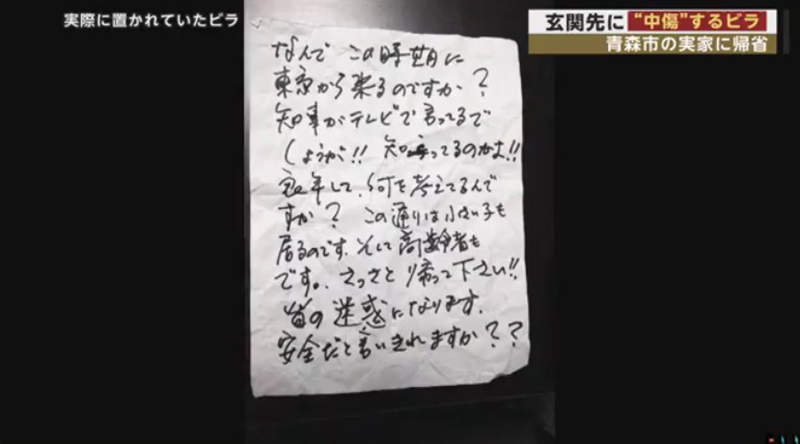 実際に置かれていたビラ
玄関先に“中傷”するビラ
青森市の実家に帰省
なんで この時期に
東京から来るのですか?
知事がテレビで言ってるで
しょうが!! 知ってるのかよ!!
良い年して、何を考えてるんで
すか? この通りは小さい子も
居るのです。そして高齢者も
です。さっさと帰って下さい!!
皆の迷惑になります。
安全だと言いきれますか??